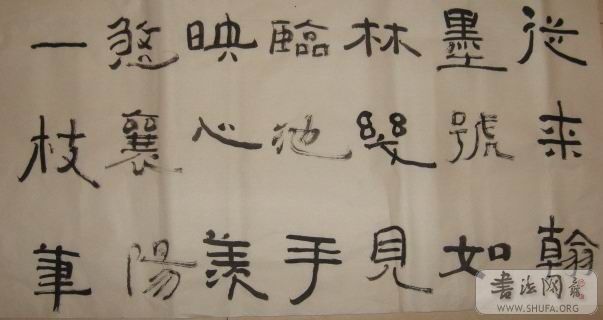 從来翰
墨號如
林幾見
臨池手
映心羨
煞襄陽
一枝筆
書法网
WWW.SHUFA.ORG